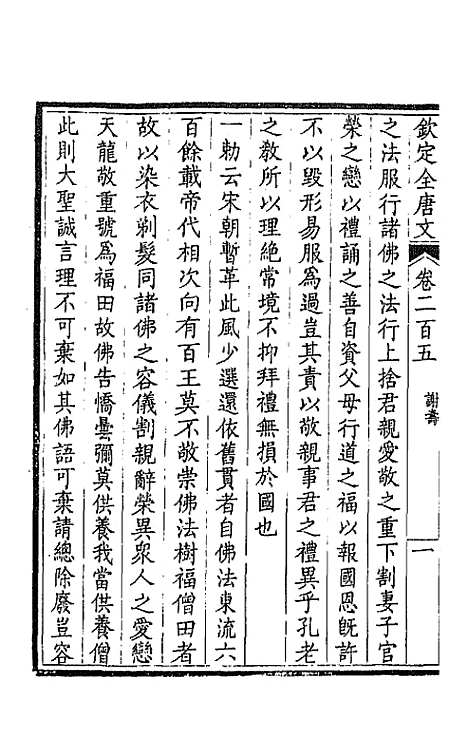 欽定全唐文
卷二百五
謝壽
一
之法服行諸佛之法行上捨君親愛敬之重下割妻子官
榮之戀以禮誦之善自資父母行道之福以報國恩旣許
不以毀形易服爲過豈其責以敬親事君之禮異乎孔老
之敎所以理絶常境不抑拜禮無損於國也
一勅云宋朝暫革此風少選還依舊貫者自佛法東流六
百餘載帝代相次向有百王莫不敬崇佛法樹福僧田者
故以染衣剃髮同諸佛之容儀割親辭榮異衆人之愛戀
天龍敬重號爲福田故佛告憍曇彌莫供養我當供養僧
此則大聖誠言理不可棄如其佛語可棄請總除廢豈容